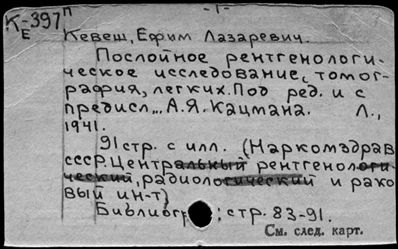 К-397 п - 1 -
Е
Кевеш, Ефим Лазаревич.
Послойное рентгенологи-
ческое исследование, томог-
рафия, легких. Под ред. и с
предисл... А.Я. Кацмана. Л.,
1941.
91 стр. с илл. (Наркомздрав
СССР. Центральный рентгенологи-
ческий, радиологический и рако
вый ин-т)
Библиогр : стр. 83-91.
См. след. карт.